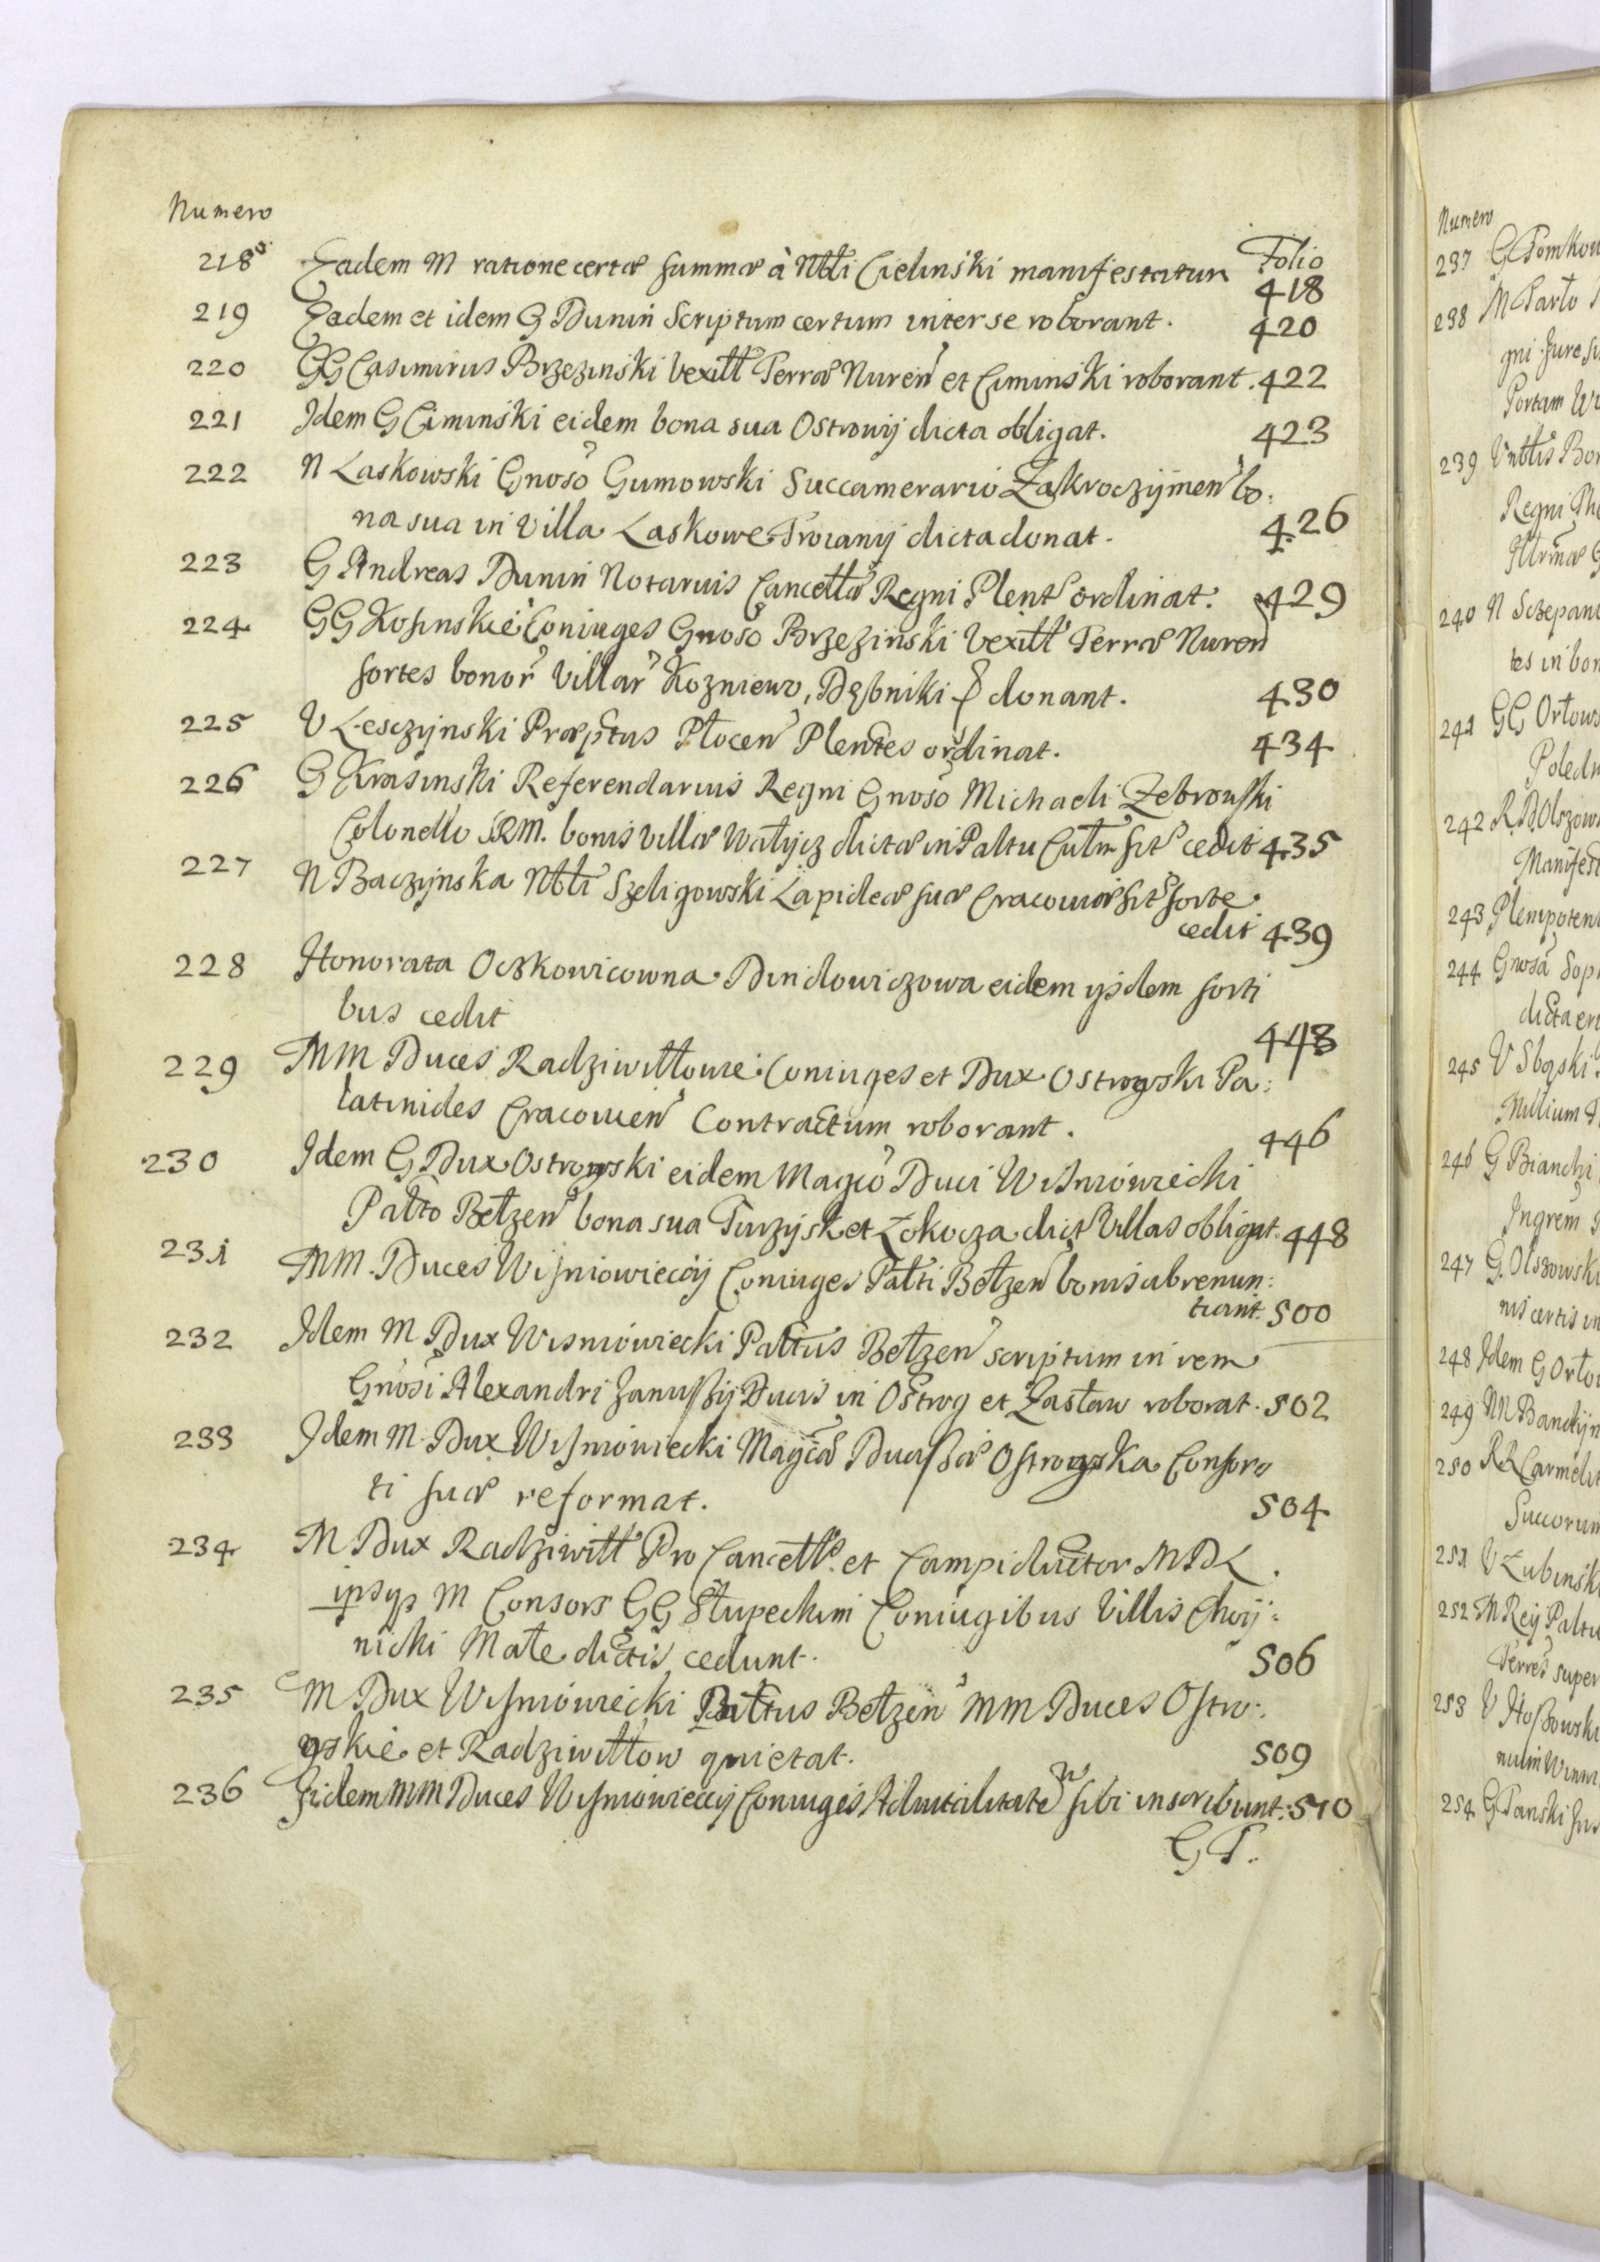 Numero
Folio
218 Eadem M ratione certæ summæ à Nbli Cielinski manifestatur 418
219 Eadem et idem G Dunin Scriptum certum inter se roborant. 420
220 GG Casimirus Brzezinski Vexill Terræ Nuren et Ciminski roborant. 422
221 Idem G Ciminski eidem bona sua Ostrowy dicta obligat. 423
222 N Laskowski Gnoso Gumowski Succamerario Zakroczymen bo:
na sua in Villa Laskowe Troiany dicta donat. 426
223 G Andreas Dunin Notarius Cancellæ Regni Plent ordinat. 429
224 GG Kosinskie Coniuges Gnoso Brzezinski Vexill Terræ Nuren
sortes bonor Villar Kozniewo, Dębniki donant. 430
225 V Lesczynski Præptus Plocen Plentes ordinat. 434
226 G Krasinski Referendarius Regni Gnoso Michaeli Zebrowski
Colonello SRM. bonis villæ Watycz dictæ in Paltu Culm sit cedit 435
227 N Baczynska Nbli Szeligowski Lapideæ suæ Cracoviæ sit sorte
cedit 439
228 Honorata Oczkowicowna Dindowiczowa eidem ysdem sorti
bus cedit 443
229 MM Duces Radziwiłłowie Coniuges et Dux Ostrogski Pa:
latinides Cracovien Contractum roborant. 446
230 Idem G Dux Ostrogski eidem Magco Duci Wisniowiecki
Palto Bełzen bona sua Turzysk et Zokocza dict Villas obligat. 448
231 MM. Duces Wisniowieccy Coniuges Palti Bełzen bonis abrenun:
tiant. 500
232 Idem M Dux Wisniowiecki Paltus Bełzen scriptum in rem
Gnosi Alexandri Janussy Ducis in Ostrog et Zasław roborat. 502
233 Idem M. Dux Wisniowiecki Magcæ Ducissæ Ostrogska Consor
ti suæ reformat. 504
234 M Dux Radziwiłł Pro Cancell. et Campiductor MDL.
ipsq M Consors GG Słupeckim Coniugibus Villis Choy:
nicki Małe dictis cedunt. 506
235 M Dux Wisniowiecki Paltus Bełzen MM Duces Ostro:
gskie et Radziwiłłow quietat. 509
236 Iidem MM Duces Wisniowieccy Coniuges Advitalitate sibi inscribunt. 510
G P.
Numero
237
238 M Parło
gni Jure
Portam
239
Regni
240 N Sczepan
tes in bon
241 GG Orłows
242 R. D. Olszow
Manifest
243 Plenipotent
244 Gnosa Sop
dicta
245 V Sbąski
246 G Bianchi
Ingrem
247 G. Olszowski
nis certis in
248 Idem G Orło
249
250 RR Carmelit
Succorum
251 V Lubinski
252 M Rey Paltu
super
253
254 G Panski